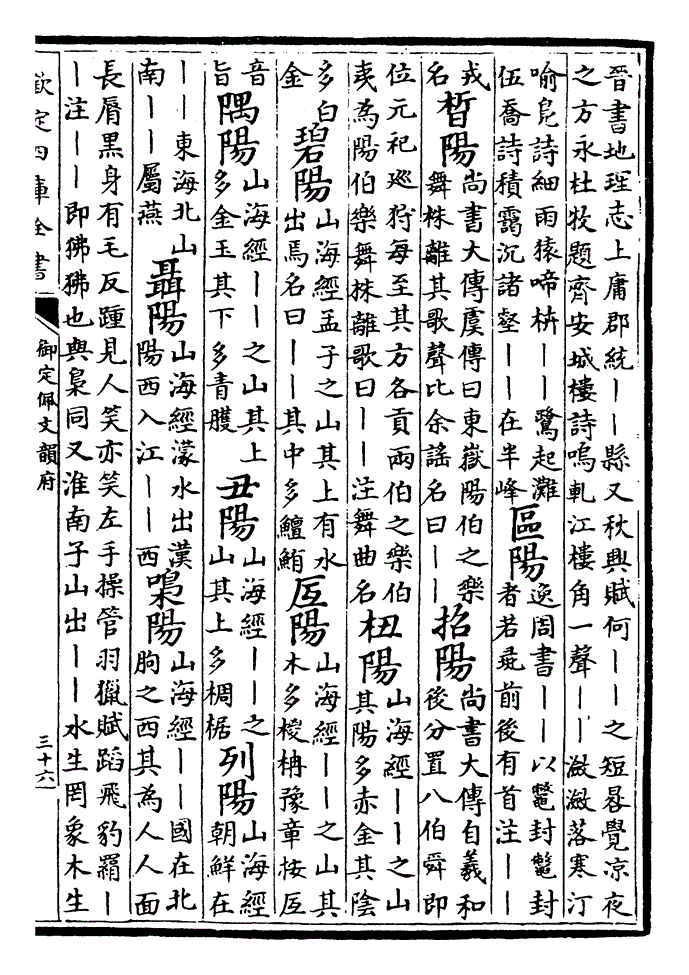 晉書地理志上庸郡統丨丨縣又秋興賦何丨丨之短晷覺涼夜
之方永杜牧題齊安城樓詩嗚軋江樓角一聲丨丨瀲瀲落寒汀
喻鳧詩細雨猿啼枿丨丨鷺起灘
伍喬詩積靄沉諸壑丨丨在半峰
區陽
逸周書丨丨以鼈封鼈封
者若彘前後有首注丨丨
戎
名
晳陽
尚書大傳虞傳曰東嶽陽伯之樂
舞株離其歌聲比余謠名曰丨丨
招陽
尚書大傳自羲和
後分置八伯舜即
位元祀廵狩每至其方各貢兩伯之樂伯
夷為陽伯樂舞株離歌曰丨丨注舞曲名
杻陽
山海經丨丨之山
其陽多赤金其陰
多白
金
碧陽
山海經孟子之山其上有水
出焉名曰丨丨其中多鱣鮪
厎陽
山海經丨丨之山其
木多㮨柟豫章按厎
音
旨
隅陽
山海經丨丨之山其上
多金玉其下多青雘
丑陽
山海經丨丨之
山其上多椆椐
列陽
山海經
朝鮮在
丨丨東海北山
南丨丨屬燕
聶陽
山海經濛水出漢
陽西入江丨丨西
嘄陽
山海經丨丨國在北
朐之西其為人人面
長脣黑身有毛反踵見人笑亦笑左手操管羽獵賦蹈飛豹羂丨
丨注丨丨即狒狒也與梟同又淮南子山出丨丨水生罔象木生
欽定四庫全書
御定佩文韻府
三十六